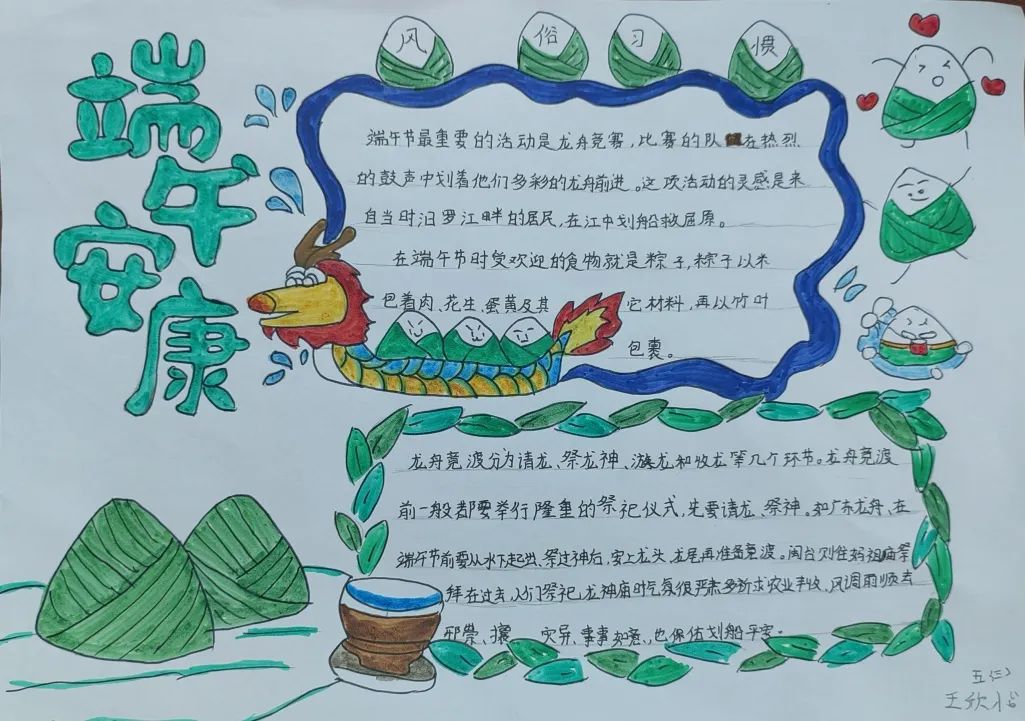 端午安康
风俗习惯
端午节最重要的活动是龙舟竞赛，比赛的队在热烈
的鼓声中划着他们多彩的龙舟前进。这项活动的灵感是来
自当时汨罗江畔的居民，在江中划船救屈原。
在端午节时受欢迎的食物就是粽子，粽子以米
包着肉、花生、蛋黄及其它材料，再以竹叶
包裹。
龙舟竞渡分为请龙、祭龙神、游龙和收龙等几个环节。龙舟竞渡
前一般都要举行隆重的祭祀仪式，先要请龙、祭神。如广东龙舟、在
端午节前要从水下起出、祭过神后，安上龙头、龙尾再准备竞渡。闽台则往妈祖庙祭
拜在过去，人们祭祀龙神庙时气氛很严肃多祈求农业丰收、风调雨顺去
邪祟、攘灾异、事事如意、也保佑划船平安。
五(三)
王欣